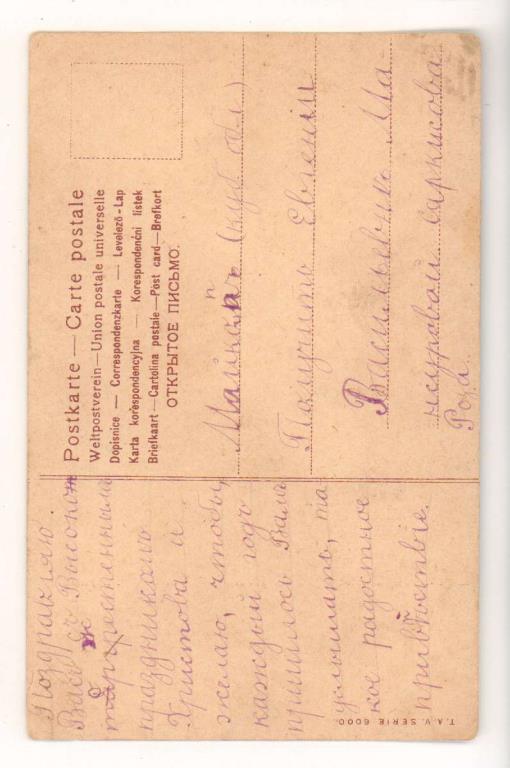 Postkarte — Carte postale
Weltpostverein — Union postale universelle
Dopisnice — Correspondenzkarte — Levelező-Lap
Karta korespondencyjna — Korespondenční lístek
Briefkaart — Cartolina postale — Post card — Brefkort
ОТКРЫТОЕ ПИСЬМО.
(куб обл)
Получить Евгеніи
Васильевнѣ
Саркисова
Роза
Поздравляю
Васъ съ Высоко
торжественнымъ
праздникомъ
Христова и
желаю, чтобы
каждый годъ
пришлось Вамъ
услышать, та
кое радостное
привѣтствіе.
T.A.V. SERIE 6000